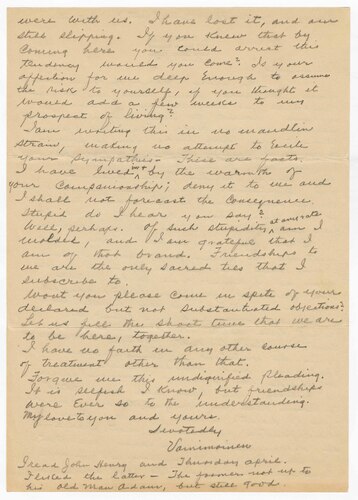 were with us. I have lost it, and am
still slipping. If you knew that by
coming here you could arrest this
tendency would you come? Is your
affection for me deep enough to assume
the risk to yourself, if you thought it
would add a few weeks to my
prospect of living?
I am writing this in no maudlin
strain, making no attempt to evoke
your sympathies – These are facts.
I have lived by the warmth of
your companionship; deny it to me and
I shall not forecast the consequence.
Stupid do I hear you say?
Well, perhaps. Of such stupidity, at any rate am I
molded, and I am grateful that I
am of that brand. Friendships to
me are the only sacred ties that I
subscribe to.
Wont you please come in spite of your
declared but not substantiated objections?
Let us fill the short time that we are
to be here, together.
I have no faith in any other course
of treatment other than that.
Forgive me this undignified pleading.
It is selfish I know, but friendships
were ever so to the understanding.
My love to you and yours.
Devotedly
Vainimoinen
I read John Henry and Thursday April.
I liked the latter – The former not up to
his Old Man Adam, but still good.